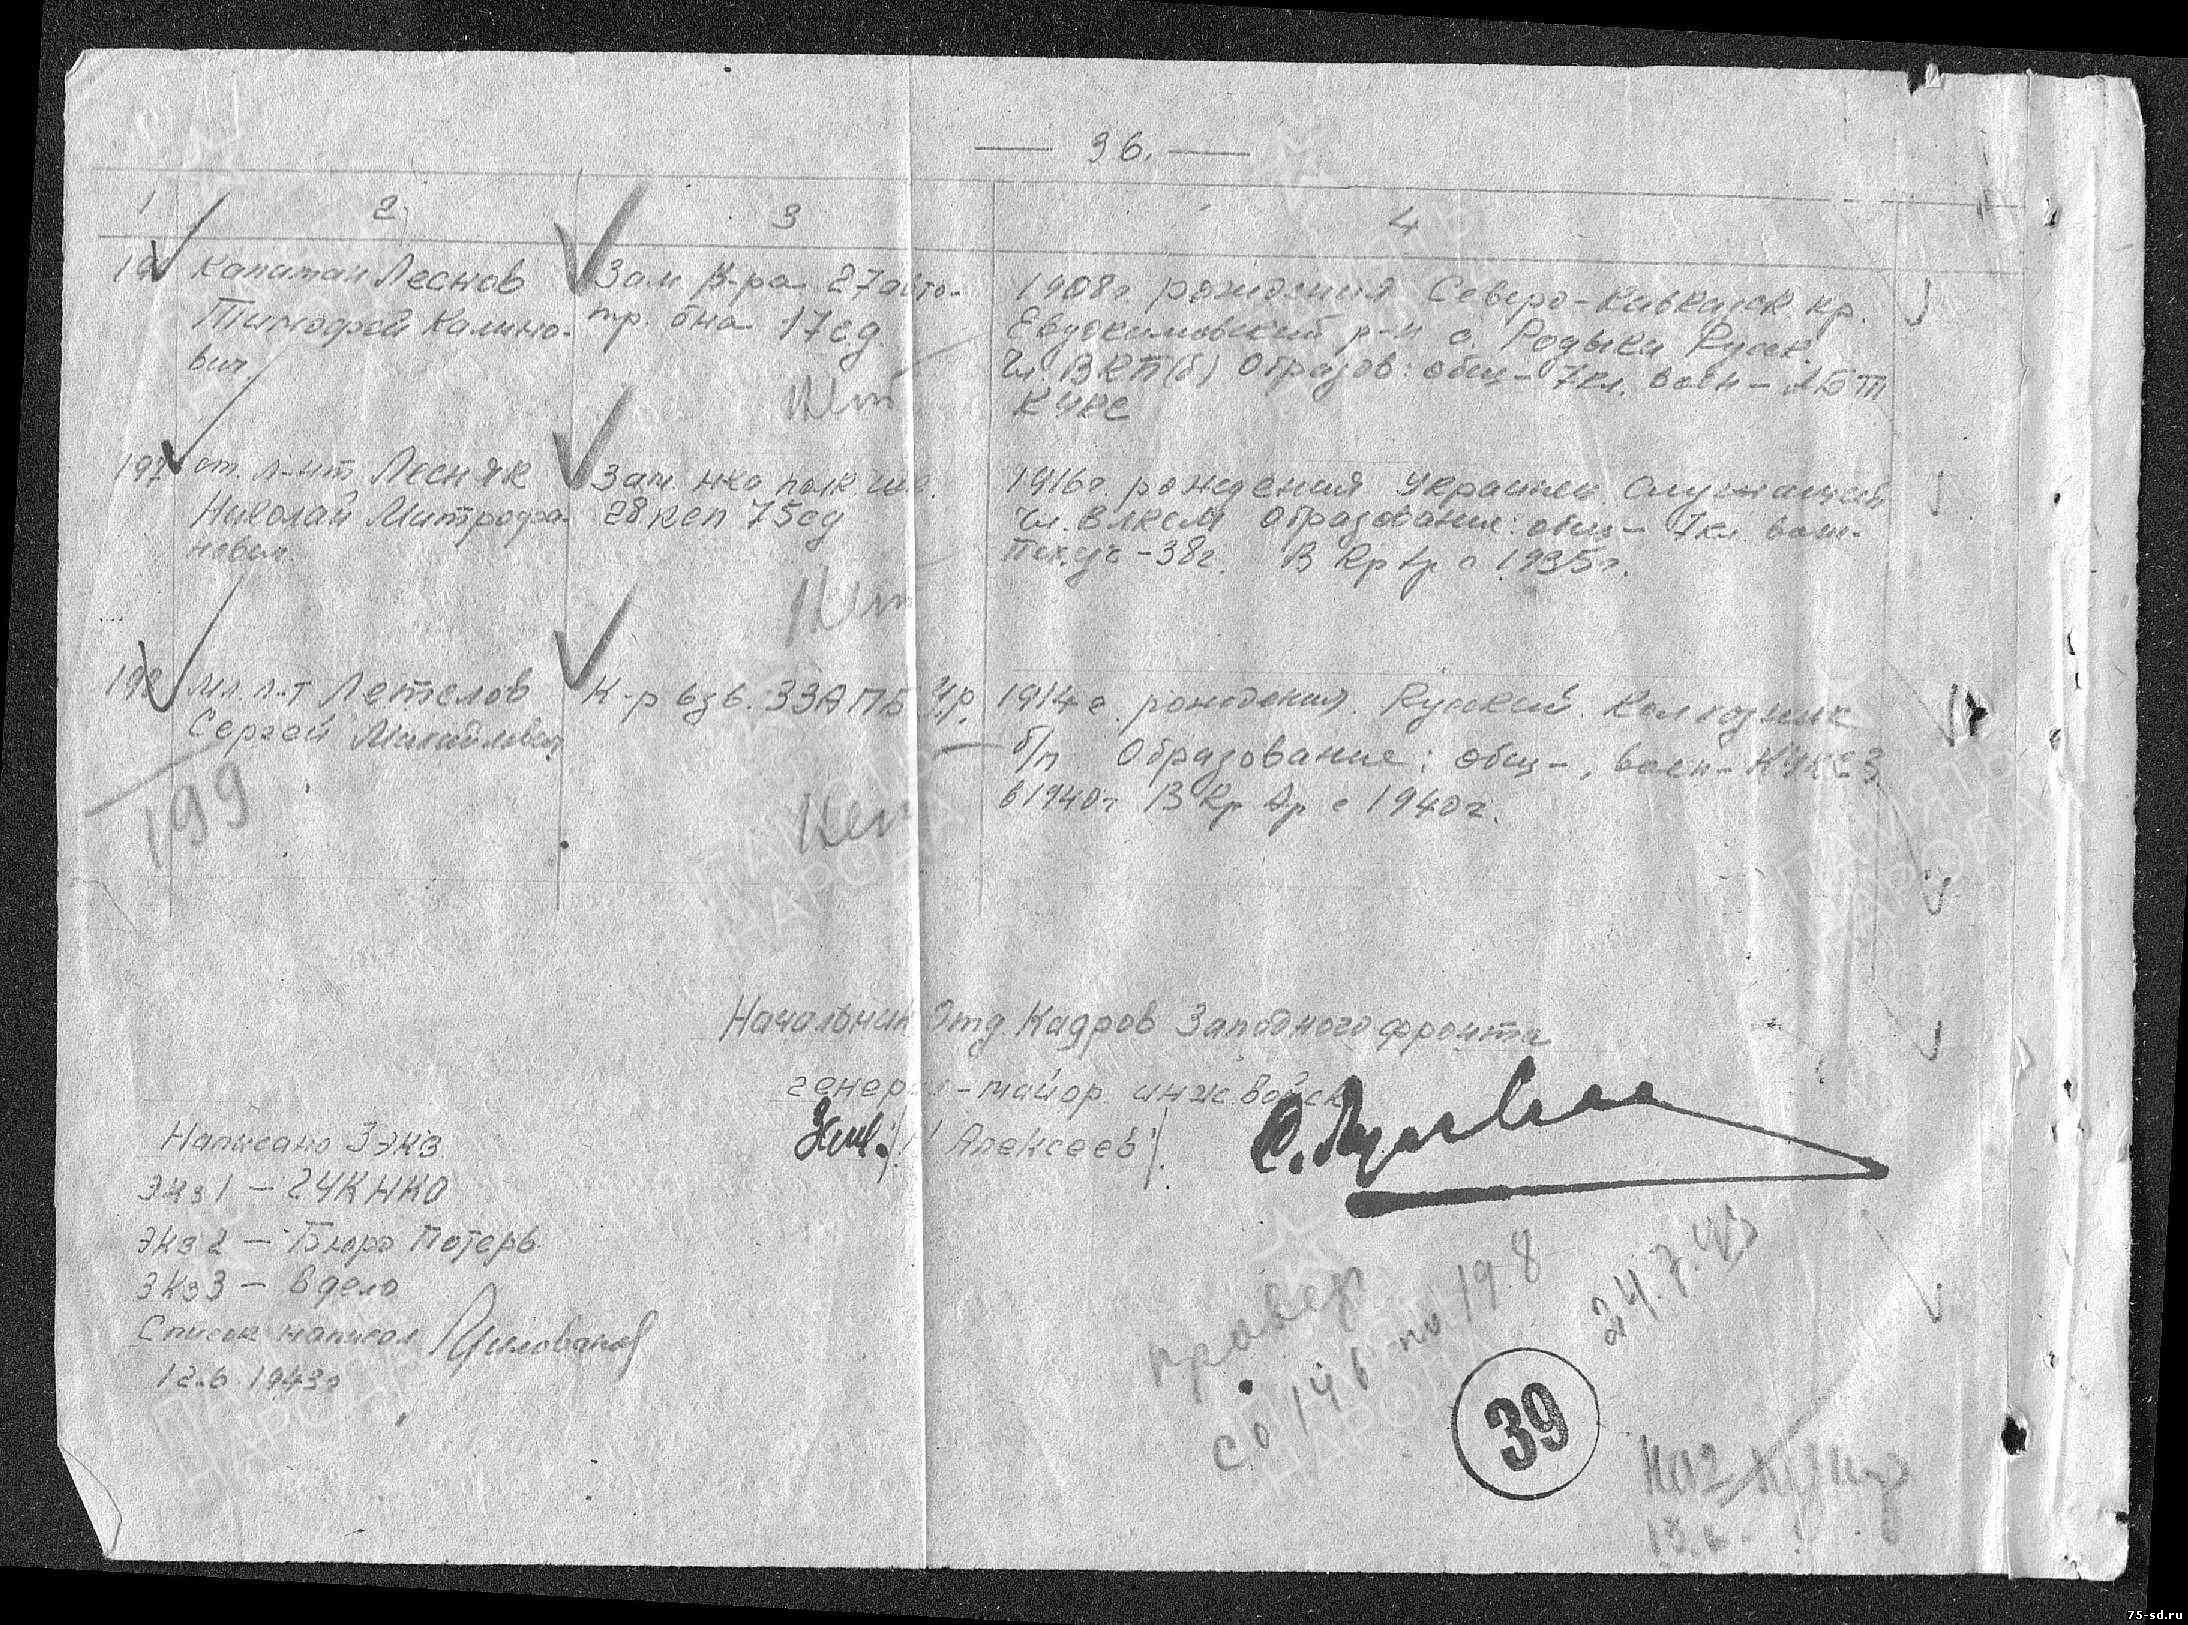 36.
1 2 3 4
капитан Леснов
Тимофей Калино-
вич.
Зам к-ра 27 авто-
тр. б-на 17сд.
Нет
1908г рождения Северо-Кавказск. кр.
Евдокимовский р-н с. Родыки Русск.
Чл. ВКП(б) Образов: общ- 7кл. воен- АБТ
КУКС
197 ст. л-нт Лесняк
Николай Митрофа-
нович.
Зам. нко полк. шк.
28 ксп 75сд
Нет
1916г. рождения Украинец Служащий
Чл. ВЛКСМ Образование: общ- 7кл воен.
Пех.уч-38г. В Кр Ар с 1935г.
мл. л-т Летелов
Сергей Михайлович
К-р взв. 33АПБ Ур.
Нет
1914г. рождения. Русский. Колхозник
б/п Образование: общ-, воен- КУКСЗ
в 1940г В Кр Ар с 1940г.
199
Начальник Отд Кадров Западного фронта
генерал-майор инж. войск
/Алексеев/.
Написано 3 экз
Экз 1 - ГУК НКО
Экз 2 - Бюро Потерь
Экз 3 - в дело
Список написал
12.6 1943г
провер
со 14 6 по 19 8
24.7.43
39
ПАМЯТЬ
НАРОДА
75-sd.ru